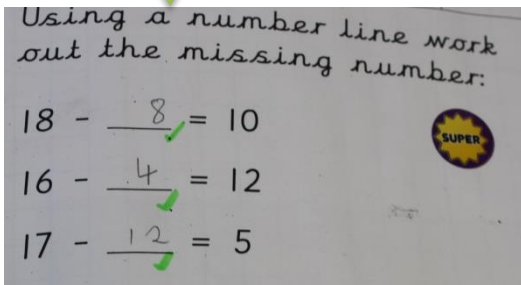 Using a number line work
out the missing number:
18 - 8 = 10
SUPER
16 - 4 = 12
17 - 12 = 5